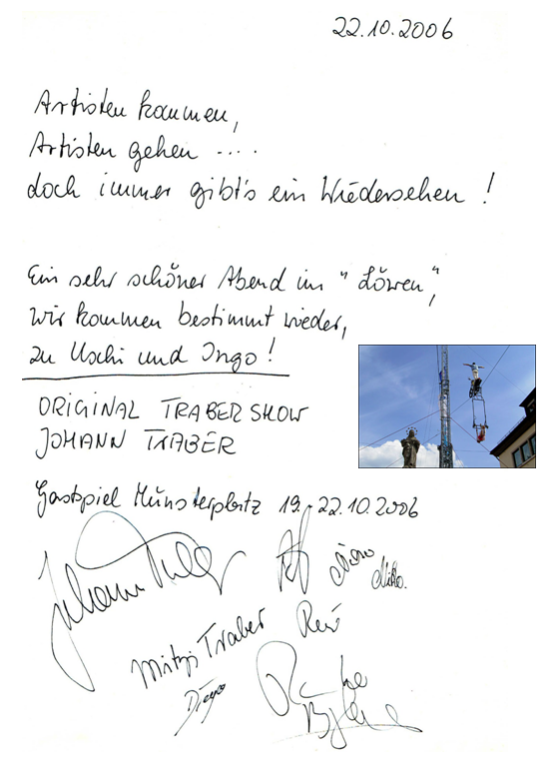 22.10.2006
Artisten kommen,
Artisten gehen ....
doch immer gibt's ein Wiedersehen !
Ein sehr schöner Abend im "Löwen",
wir kommen bestimmt wieder,
zu Uschi und Ingo!
ORIGINAL TRABER SHOW
JOHANN TRABER
Gastspiel Münsterplatz 19.-22.10.2006
Johann Traber
Mitzi Traber